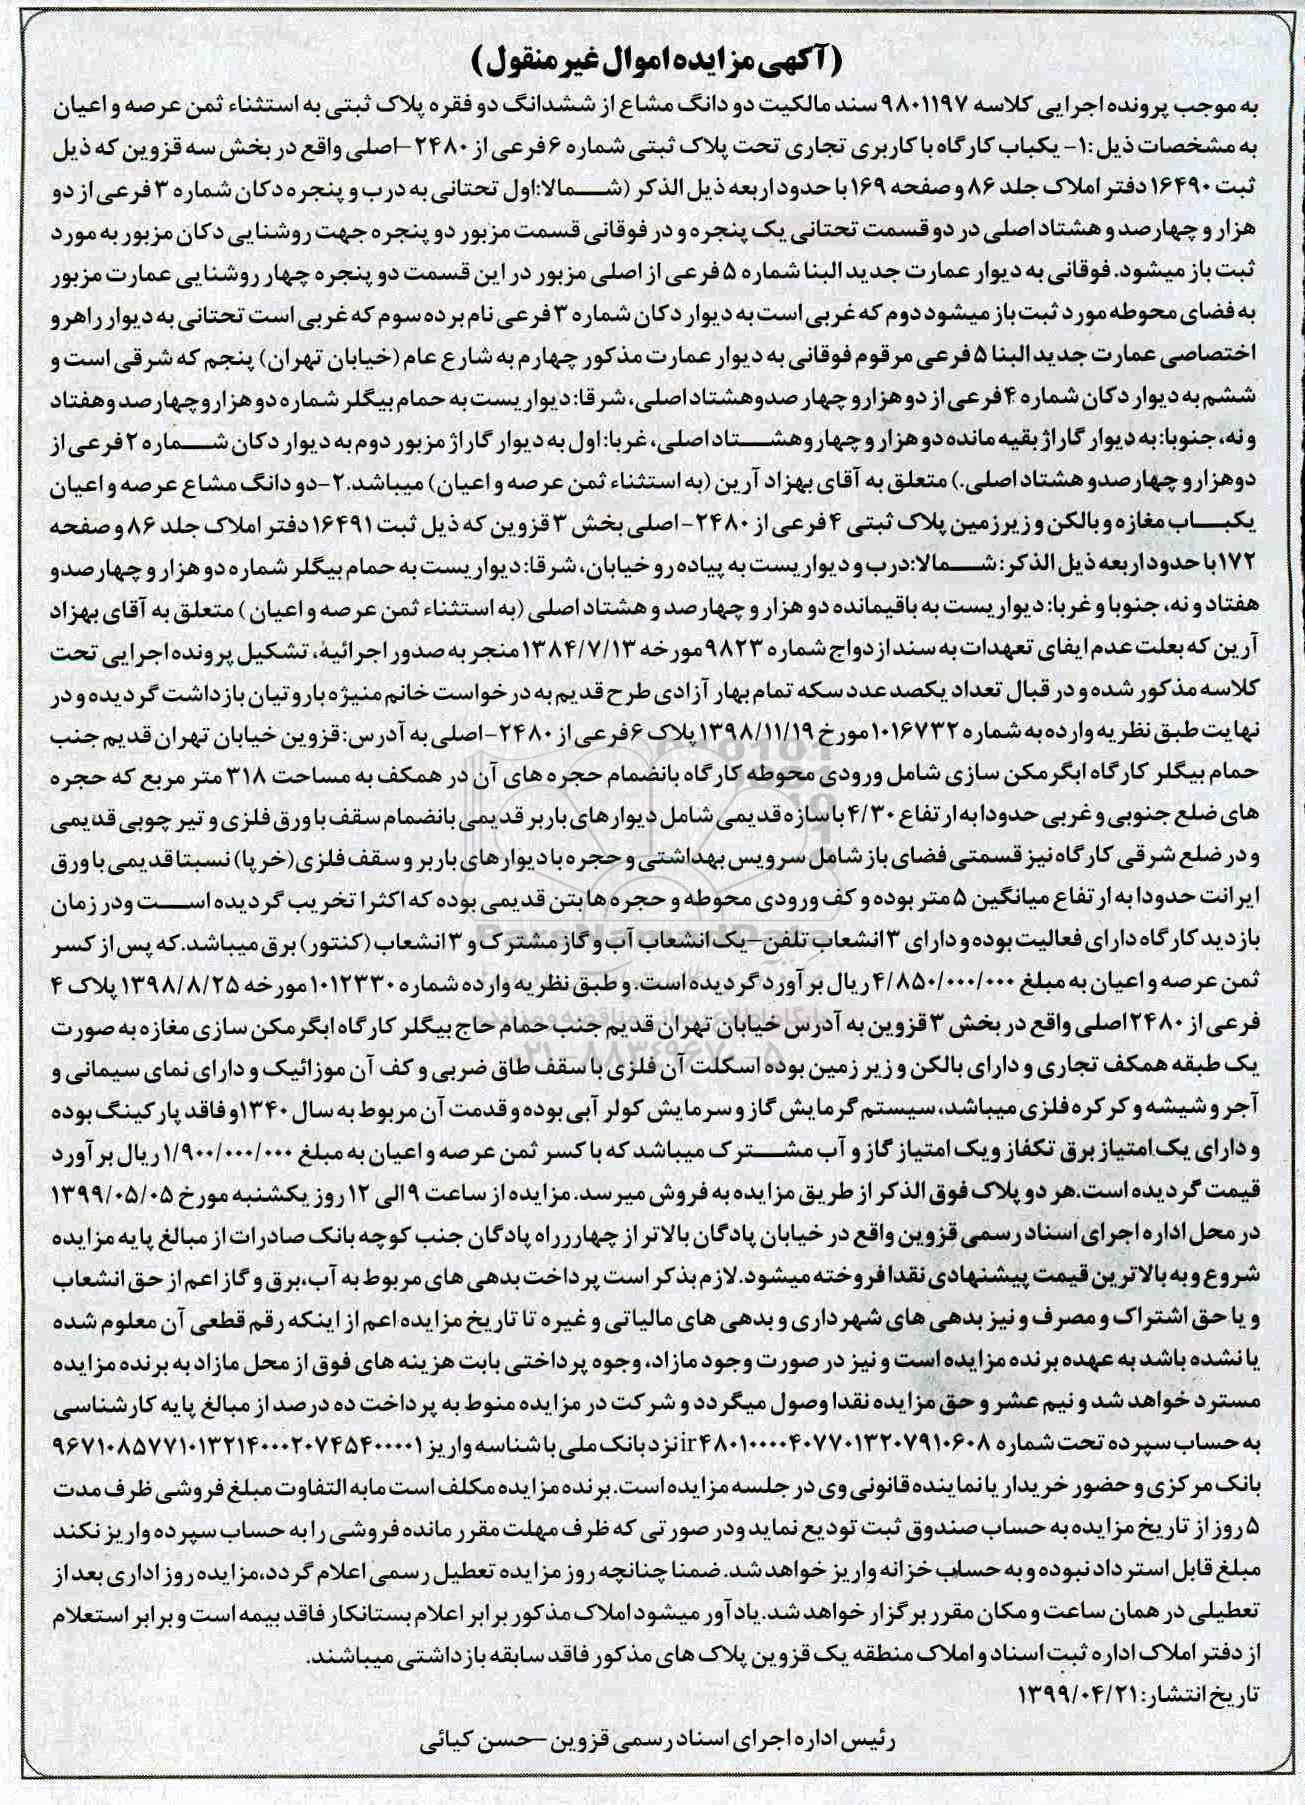 (آگهی مزایده اموال غیر منقول)
به موجب پرونده اجرایی کلاسه ۹۸۰۱۱۹۷ سند مالکیت دو دانگ مشاع از ششدانگ دو فقره پلاک ثبتی به استثناء ثمن عرصه و اعیان
به مشخصات ذیل :۱- یکباب کارگاه با کاربری تجاری تحت پلاک ثبتی شماره ۶ فرعی از ۲۴۸۰ -اصلی واقع در بخش سه قزوین که ذیل
ثبت ۱۶۴۹۰ دفتر املاک جلد ۸۶ و صفحه ۱۶۹ با حدود اربعه ذیل الذکر (شمالا:اول تحتانی به درب و پنجره دکان شماره ۳ فرعی از دو
هزار و چهارصد و هشتاد اصلی در دو قسمت تحتانی یک پنجره و در فوقانی قسمت مزبور دو پنجره جهت روشنایی دکان مزبور به مورد
ثبت باز میشود. فوقانی به دیوار عمارت جدید البنا شماره ۵ فرعی از اصلی مزبور در این قسمت دو پنجره چهار روشنایی عمارت مزبور
به فضای محوطه مورد ثبت باز میشود دوم که غربی است به دیوار دکان شماره ۳ فرعی نام برده سوم که غربی است تحتانی به دیوار راهرو
اختصاصی عمارت جدید البنا ۵ فرعی مرقوم فوقانی به دیوار عمارت مذکور چهارم به شارع عام (خیابان تهران) پنجم که شرقی است و
ششم به دیوار دکان شماره ۴ فرعی از دو هزارو چهار صدوهشتاد اصلی، شرقا: دیواریست به حمام بیگلر شماره دو هزاروچهارصد وهفتاد
و نه، جنوبا: به دیوار گاراژ بقیه مانده دو هزار و چهاروهشتاد اصلی، غربا: اول به دیوار گاراژ مزبور دوم به دیوار دکان شماره ۲ فرعی از
دوهزارو چهارصدو هشتاد اصلی.) متعلق به آقای بهزاد آرین (به استثناء ثمن عرصه و اعیان) میباشد.۲-دو دانگ مشاع عرصه و اعیان
یکباب مغازه و بالکن و زیرزمین پلاک ثبتی ۴ فرعی از ۲۴۸۰-اصلی بخش ۳ قزوین که ذیل ثبت ۱۶۴۹۱ دفتر املاک جلد ۸۶ و صفحه
۱۷۲ با حدود اربعه ذیل الذکر: شمالا:درب و دیواریست به پیاده رو خیابان، شرقا: دیواریست به حمام بیگلر شماره دو هزار و چهارصدو
هفتاد و نه، جنوبا و غربا: دیواریست به باقیمانده دو هزار و چهارصد و هشتاد اصلی (به استثناء ثمن عرصه و اعیان ) متعلق به آقای بهزاد
آرین که بعلت عدم ایفای تعهدات به سند ازدواج شماره ۹۸۲۳ مورخه ۱۳۸۴/۷/۱۳ منجر به صدور اجرائیه، تشکیل پرونده اجرایی تحت
کلاسه مذکور شده و در قبال تعداد یکصد عدد سکه تمام بهار آزادی طرح قدیم به درخواست خانم منیژه باروتیان بازداشت گردیده و در
نهایت طبق نظریه وارده به شماره ۱۰۱۶۷۳۲ مورخ ۱۳۹۸/۱۱/۱۹ پلاک ۶ فرعی از ۲۴۸۰-اصلی به آدرس: قزوین خیابان تهران قدیم جنب
حمام بیگلر کارگاه ابگرمکن سازی شامل ورودی محوطه کارگاه بانضمام حجره های آن در همکف به مساحت ۳۱۸ متر مربع که حجره
های ضلع جنوبی و غربی حدودا به ارتفاع ۴/۳۰ با سازه قدیمی شامل دیوارهای باربر قدیمی بانضمام سقف با ورق فلزی و تیر چوبی قدیمی
و در ضلع شرقی کارگاه نیز قسمتی فضای باز شامل سرویس بهداشتی و حجره با دیوارهای باربر و سقف فلزی(خرپا) نسبتا قدیمی با ورق
ایرانت حدودا به ارتفاع میانگین ۵ متر بوده و کف ورودی محوطه و حجره ها بتن قدیمی بوده که اکثرا تخریب گردیده است ودر زمان
بازدید کارگاه دارای فعالیت بوده و دارای ۳ انشعاب تلفن –یک انشعاب آب و گاز مشترک و ۳ انشعاب (کنتور) برق میباشد.که پس از کسر
ثمن عرصه و اعیان به مبلغ ۴/۸۵۰/۰۰۰/۰۰۰ ریال بر آورد گردیده است. و طبق نظریه وارده شماره ۱۰۱۲۳۳۰ مورخه ۱۳۹۸/۸/۲۵ پلاک ۴
فرعی از ۲۴۸۰ اصلی واقع در بخش ۳ قزوین به آدرس خیابان تهران قدیم جنب حمام حاج بیگلر کارگاه ابگرمکن سازی مغازه به صورت
یک طبقه همکف تجاری و دارای بالکن و زیر زمین بوده اسکلت آن فلزی با سقف طاق ضربی و کف آن موزائیک و دارای نمای سیمانی و
آجر و شیشه و کرکره فلزی میباشد، سیستم گرمایش گاز و سرمایش کولر آبی بوده و قدمت آن مربوط به سال ۱۳۴۰ و فاقد پارکینگ بوده
و دارای یک امتیاز برق تکفاز ویک امتیاز گاز و آب مشترک میباشد که با کسر ثمن عرصه و اعیان به مبلغ ۱/۹۰۰/۰۰۰/۰۰۰ ریال بر آورد
قیمت گردیده است.هر دو پلاک فوق الذکر از طریق مزایده به فروش میرسد. مزایده از ساعت ۹ الی ۱۲ روز یکشنبه مورخ ۱۳۹۹/۰۵/۰۵
در محل اداره اجرای اسناد رسمی قزوین واقع در خیابان پادگان بالاتر از چهارراه پادگان جنب کوچه بانک صادرات از مبالغ پایه مزایده
شروع و به بالاترین قیمت پیشنهادی نقدا فروخته میشود. لازم بذکر است پرداخت بدهی های مربوط به آب،برق و گاز اعم از حق انشعاب
و یا حق اشتراک و مصرف و نیز بدهی های شهرداری و بدهی های مالیاتی و غیره تا تاریخ مزایده اعم از اینکه رقم قطعی آن معلوم شده
یا نشده باشد به عهده برنده مزایده است و نیز در صورت وجود مازاد، وجوه پرداختی بابت هزینه های فوق از محل مازاد به برنده مزایده
مسترد خواهد شد و نیم عشر و حق مزایده نقدا وصول میگردد و شرکت در مزایده منوط به پرداخت ده درصد از مبالغ پایه کارشناسی
به حساب سپرده تحت شماره ir۴۸۰۱۰۰۰۰۴۰۷۷۰۱۳۲۰۷۹۱۰۶۰۸ نزد بانک ملی با شناسه واریز ۹۶۷۱۰۸۵۷۷۱۰۱۳۲۱۴۰۰۰۲۰۷۴۵۴۰۰۰۰۱
بانک مرکزی و حضور خریدار یا نماینده قانونی وی در جلسه مزایده است. برنده مزایده مکلف است مابه التفاوت مبلغ فروشی ظرف مدت
۵ روز از تاریخ مزایده به حساب صندوق ثبت تودیع نماید ودر صورتی که ظرف مهلت مقرر مانده فروشی را به حساب سپرده واریز نکند
مبلغ قابل استرداد نبوده و به حساب خزانه واریز خواهد شد. ضمنا چنانچه روز مزایده تعطیل رسمی اعلام گردد،مزایده روز اداری بعد از
تعطیلی در همان ساعت و مکان مقرر برگزار خواهد شد. یادآور میشود املاک مذکور برابر اعلام بستانکار فاقد بیمه است و برابر استعلام
از دفتر املاک اداره ثبت اسناد و املاک منطقه یک قزوین پلاک های مذکور فاقد سابقه بازداشتی میباشند.
تاریخ انتشار: ۱۳۹۹/۰۴/۲۱
رئیس اداره اجرای اسناد رسمی قزوین –حسن کیائی